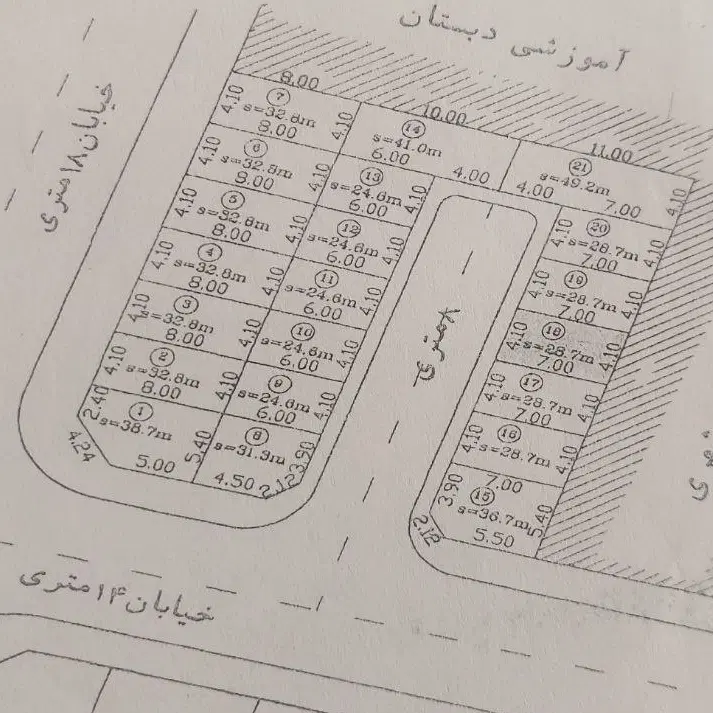 آموزشی دبستان
خیابان ۱۸ متری
8.00
7
4.10
s=32.8m
4.10
8.00
10.00
14
s=41.0m
6.00
4.00
11.00
21
s=49.2m
4.00
7.00
4.10
6
4.10
s=32.8m
8.00
13
s=24.6m
4.10
6.00
5
4.10
s=32.8m
4.10
8.00
12
s=24.6m
4.10
6.00
4
4.10
s=32.8m
4.10
8.00
11
s=24.6m
4.10
6.00
3
4.10
s=32.8m
4.10
8.00
10
s=24.6m
4.10
6.00
2
4.10
s=32.8m
4.10
8.00
9
s=24.6m
4.10
6.00
1
2.40
s=38.7m
4.24
5.00
5.40
8
s=31.3m
3.90
4.50
2.12
۸ متری
20
4.10
s=28.7m
4.10
7.00
19
4.10
s=28.7m
4.10
7.00
18
4.10
s=28.7m
4.10
7.00
17
4.10
s=28.7m
4.10
7.00
16
4.10
s=28.7m
4.10
7.00
15
3.90
s=36.7m
5.40
2.12
5.50
خیابان ۱۴ متری